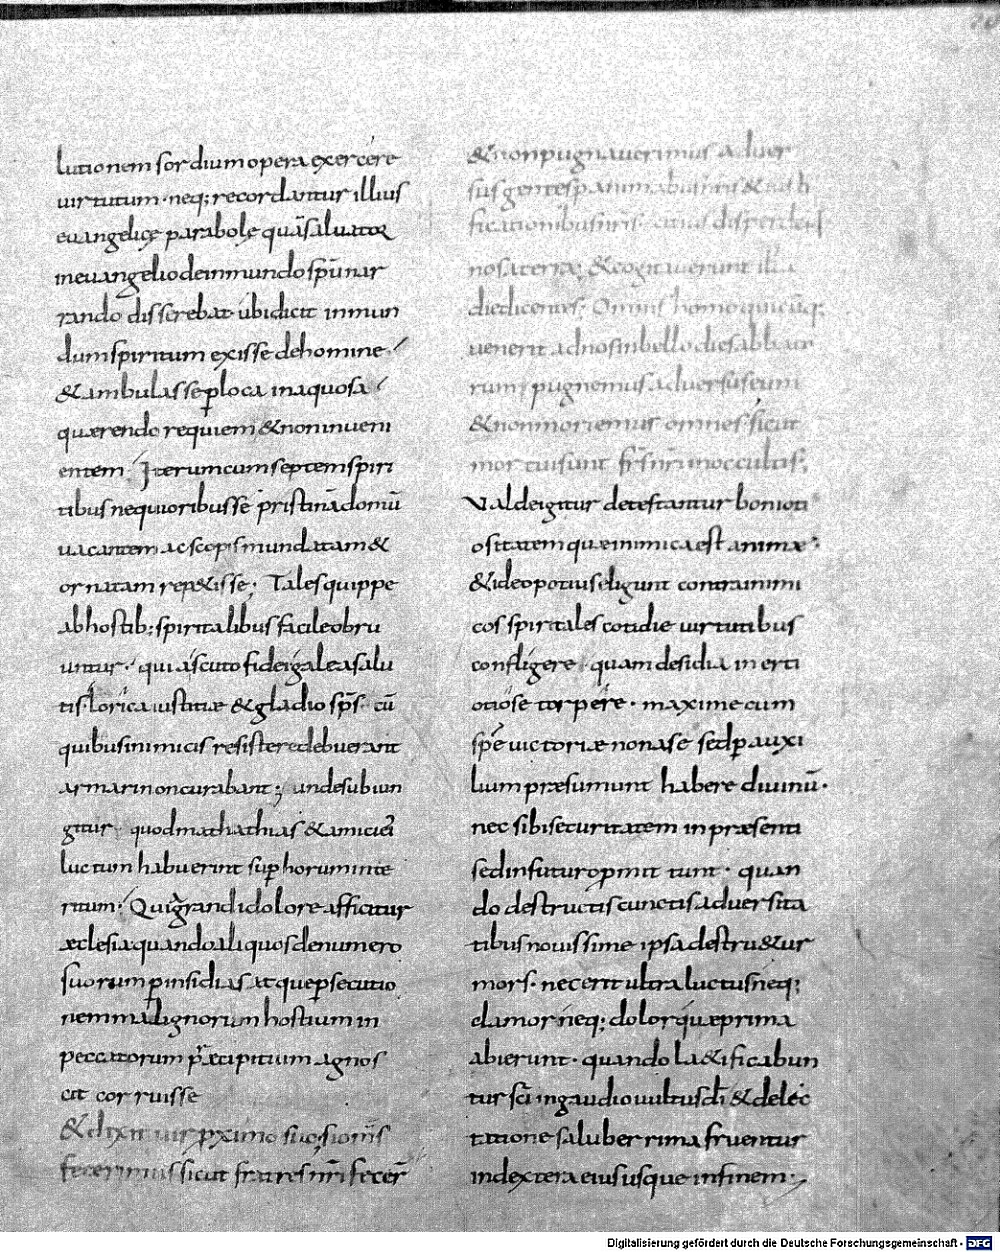 lutionem sordium opera exercere
uirtutum· neq; recordantur illius
euangelicę parabolę quā saluator
in euangelio de inmundo spū nar
rando disserebat· ubi dicit inmun
dum spiritum exisse de homine·
& ambulasse p loca inaquosa
quærendo requiem & non inueni
entem· Iterum cum septem spiri
tibus nequioribus se pristinā domū
uacantem ac scopis mundatam &
ornatam rep&isse; Tales quippe
ab hostib; spiritalibus facile obru
untur· qui a scuto fidei galea salu
tis lorica iustitiæ & gladio sp̄s· cū
quibus inimicis resistere debuerant
armari non curabant; unde subiun
gitur· quod mathathias & amici ei
luctum habuerint sup horum inte
ritum· Qui grandi dolore afficitur
æclesia quando aliquos de numero
suorum p insidias atque psecutio
nem malignorum hostium in
peccatorum p̄cipitium agnos
cit corruisse
& dixit uir pximo suo· si om̄s
fecerimus sicut fratres nr̄i fecer̄
& non pugnauerimus aduer
sus gentes p animabus nr̄is & iusti
ficationibus nr̄is· citius disperdent
nos a terra· & cogitauerunt illa
die dicentes· Omnis homo quicūq;
uenerit ad nos in bello die sabbato
rum· pugnemus aduersus eum
& non moriemur omnes· sicut
mortui sunt fr̄s nr̄i in occultis·
Valde igitur detestantur boni oti
ositatem quæ inimica est animæ·
& ideo potius eligunt contra inimi
cos spiritales cotidie uirtutibus
confligere· quam desidia inerti
otiose torpere· maxime cum
spe uictoriæ non a se sed p auxi
lium præsumunt habere diuinū·
nec sibi securitatem in præsenti
sed in futuro pmittunt· quan
do destructis cunctis aduersita
tibus nouissime ipsa destru&ur
mors· nec erit ultra luctus neq;
clamor neq; dolor quæ prima
abierunt· quando lætificabun
tur sc̄i in gaudio uultus dī & delec
tatione saluberrima fruentur
in dextera eius usque in finem·
Digitalisierung gefördert durch die Deutsche Forschungsgemeinschaft - DFG